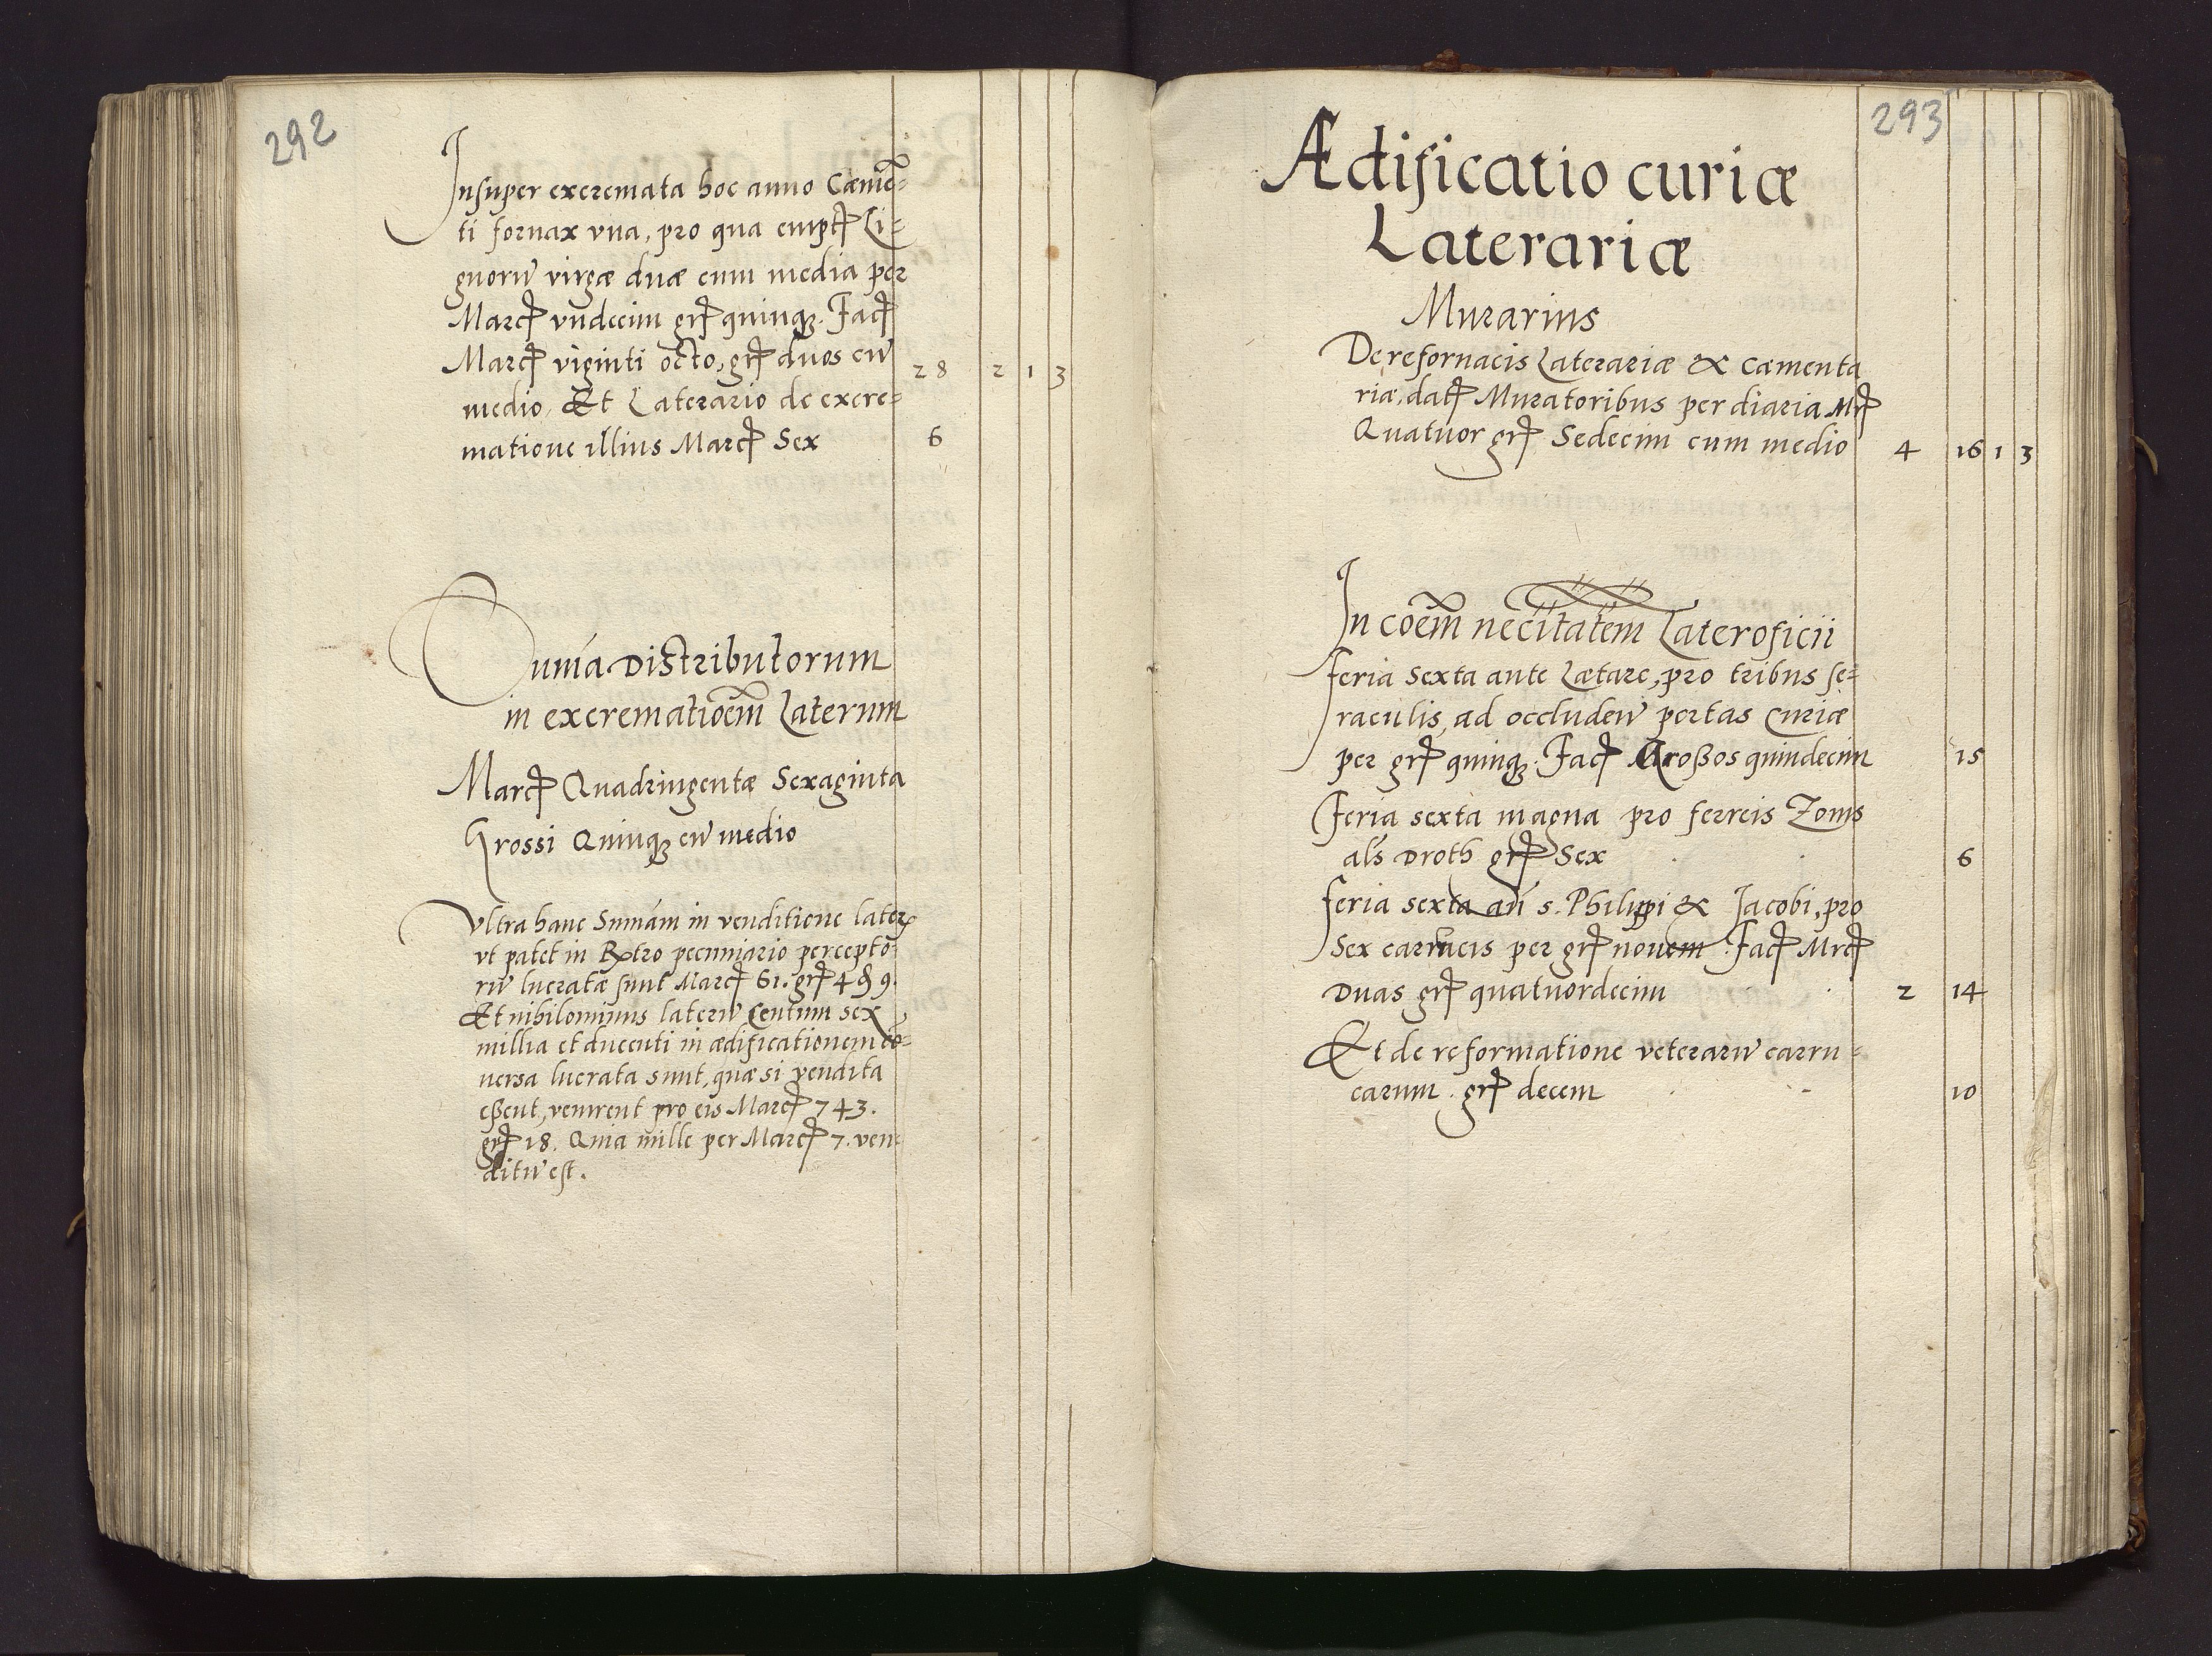 292
Insuper excremata hoc anno Cæmē=
ti fornax vna, pro qua emptꝭ Li=
gnorũ virgæ duæ cum media per
Marcꝭ vndecim grꝭ quinqꝫ. Facꝭ
Marcꝭ viginti octo, grꝭ duos cũ 28 2 1 3
medio, Et Laterario de excre=
matione illius Marcꝭ Sex 6
Sum̃a Distributorum
in excrematiõem Laterum
Marcꝭ Quadringentæ Sexaginta
Grossi Quinqꝫ cũ medio
Vltra hanc Sum̃am in venditione laterꝝ
vt patet in Rꝭtro pecuniario percepto-
rũ lucratæ sunt Marcꝭ 61. grꝭ 4 ₰ 9.
Et nihilominus laterũ Centum sex
millia et ducenti in ædificationem cõ=
uersa lucrata sunt, quæ si vendita
eßent, venirent pro eis Marcꝭ 743.
grꝭ 18. Quia mille per Marcꝭ 7. ven=
ditũ est.
293
Ædificatio curiæ
Laterariæ
Murarius
De refornacis Laterariæ & Cæmenta
riæ, datꝭ Muratoribus per diaria Mrꝭ
Quatuor grꝭ Sedecim cum medio 4 16 1 3
In cõem necĩtatem Lateroficii
feria Sexta ante Lætare, pro tribus se=
raculis, ad occludeñ portas Curiæ
per grꝭ quinqꝫ. Facꝭ Großos quindecim 15
Feria sexta magna pro ferreis Zonis
als Droth grꝭ Sex 6
feria sexta añ s. Philippi & Jacobi, pro
Sex carrucis per grꝭ nouem. Facꝭ Mrcꝭ
Duas grꝭ quatuordecim 2 14
Et de reformatione veterarũ carru=
carum. grꝭ decem 10